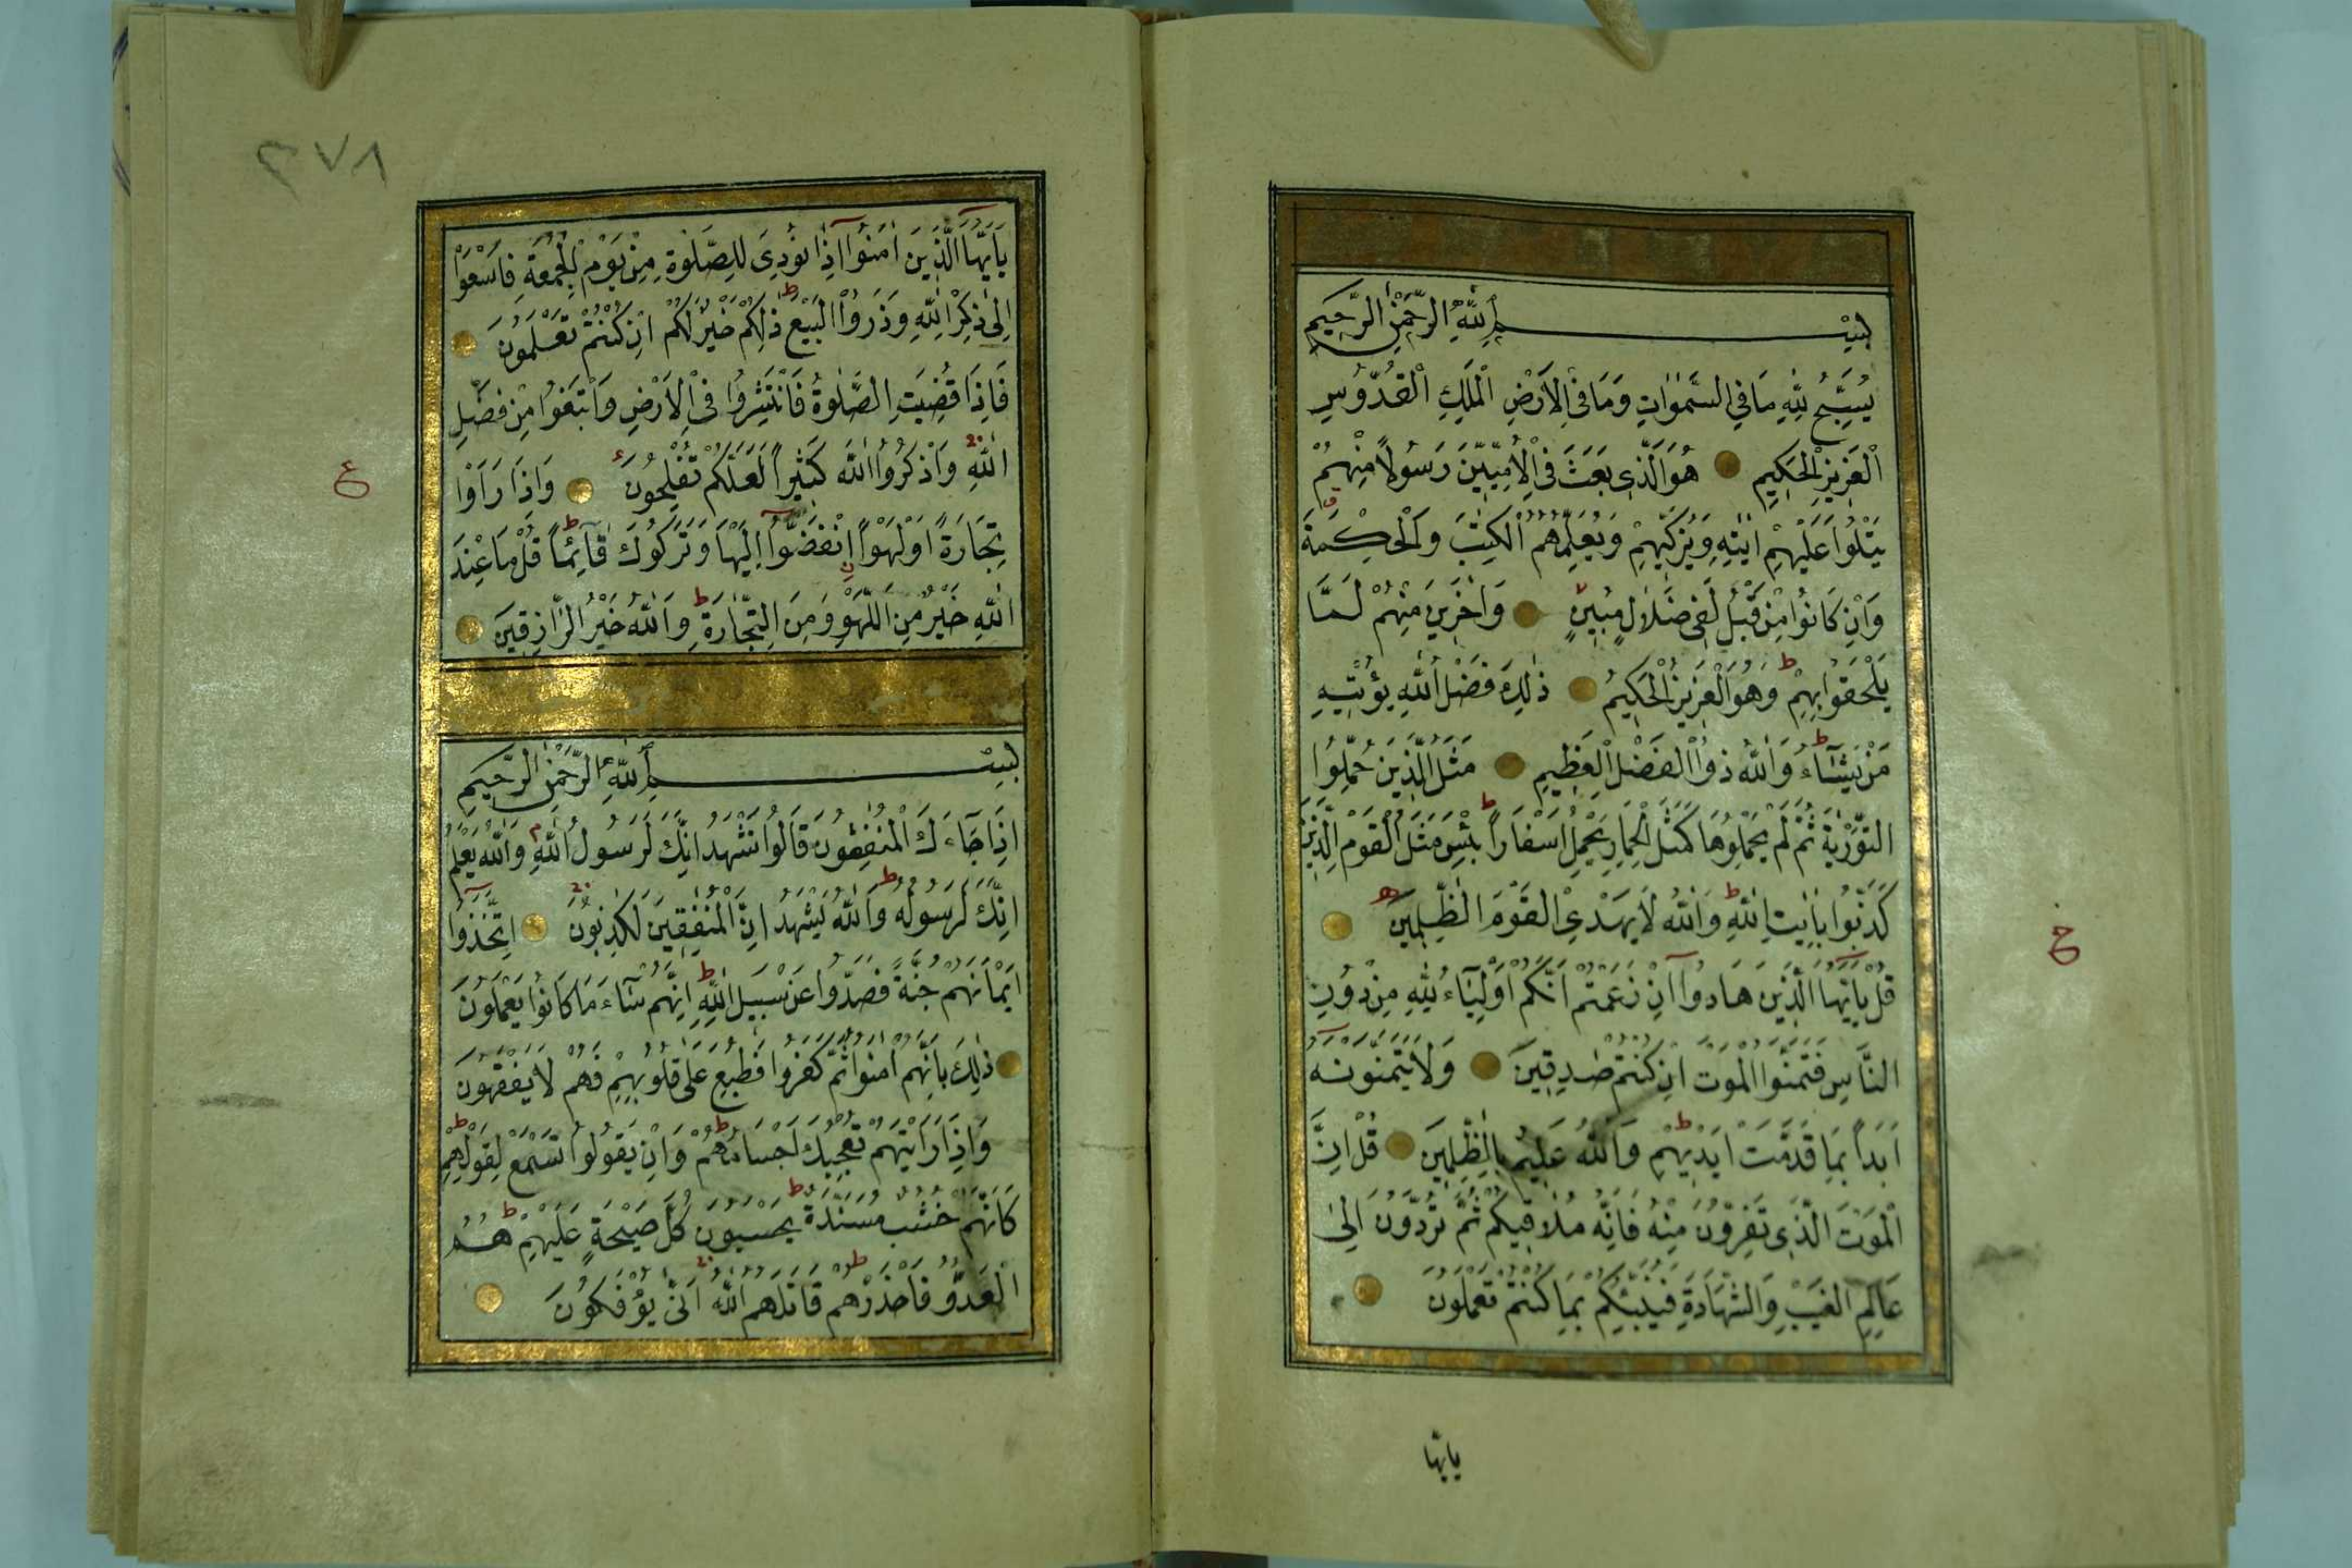 بِسْمِ اللّٰهِ الرَّحْمٰنِ الرَّحِيمِ
يُسَبِّحُ لِلّٰهِ مَا فِي السَّمٰوَاتِ وَمَا فِي الْاَرْضِ الْمَلِكِ الْقُدُّوسِ
الْعَزِيزِ الْحَكِيمِ هُوَ الَّذِي بَعَثَ فِي الْاُمِّيّٖنَ رَسُولًا مِنْهُمْ
يَتْلُوا عَلَيْهِمْ اٰيٰتِهِ وَيُزَكِّيهِمْ وَيُعَلِّمُهُمُ الْكِتٰبَ وَالْحِكْمَةَ
وَاِنْ كَانُوا مِنْ قَبْلُ لَفِي ضَلَالٍ مُبِينٍ وَاٰخَرِينَ مِنْهُمْ لَمَّا
يَلْحَقُوا بِهِمْ ط وَهُوَ الْعَزِيزُ الْحَكِيمُ ذٰلِكَ فَضْلُ اللّٰهِ يُؤْتِيهِ
مَنْ يَشَاءُ ط وَاللّٰهُ ذُوا الْفَضْلِ الْعَظِيمِ مَثَلُ الَّذِينَ حُمِّلُوا
التَّوْرٰيةَ ثُمَّ لَمْ يَحْمِلُوهَا كَمَثَلِ الْحِمَارِ يَحْمِلُ اَسْفَارًا ط بِئْسَ مَثَلُ الْقَوْمِ الَّذِينَ
كَذَّبُوا بِاٰيٰتِ اللّٰهِ ط وَاللّٰهُ لَا يَهْدِي الْقَوْمَ الظّٰلِمِينَ
قُلْ يَاَيُّهَا الَّذِينَ هَادُوا اِنْ زَعَمْتُمْ اَنَّكُمْ اَوْلِيَاءُ لِلّٰهِ مِنْ دُونِ
النَّاسِ فَتَمَنَّوُا الْمَوْتَ اِنْ كُنْتُمْ صٰدِقِينَ وَلَا يَتَمَنَّوْنَهُ
اَبَدًا بِمَا قَدَّمَتْ اَيْدِيهِمْ ط وَاللّٰهُ عَلِيمٌ بِالظّٰلِمِينَ قُلْ اِنَّ
الْمَوْتَ الَّذِي تَفِرُّونَ مِنْهُ فَاِنَّهُ مُلَاقِيكُمْ ثُمَّ تُرَدُّونَ اِلٰى
عَالِمِ الْغَيْبِ وَالشَّهَادَةِ فَيُنَبِّئُكُمْ بِمَا كُنْتُمْ تَعْمَلُونَ
يايها
٣٧٨
يَاَيُّهَا الَّذِينَ اٰمَنُوا اِذَا نُودِيَ لِلصَّلٰوةِ مِنْ يَوْمِ الْجُمُعَةِ فَاسْعَوْا
اِلٰى ذِكْرِ اللّٰهِ وَذَرُوا الْبَيْعَ ط ذٰلِكُمْ خَيْرٌ لَكُمْ اِنْ كُنْتُمْ تَعْلَمُونَ
فَاِذَا قُضِيَتِ الصَّلٰوةُ فَانْتَشِرُوا فِي الْاَرْضِ وَابْتَغُوا مِنْ فَضْلِ
اللّٰهِ وَاذْكُرُوا اللّٰهَ كَثِيرًا لَعَلَّكُمْ تُفْلِحُونَ وَاِذَا رَاَوْا
تِجَارَةً اَوْ لَهْوًا انْفَضُّوا اِلَيْهَا وَتَرَكُوكَ قَائِمًا ط قُلْ مَا عِنْدَ
اللّٰهِ خَيْرٌ مِنَ اللَّهْوِ وَمِنَ التِّجَارَةِ ط وَاللّٰهُ خَيْرُ الرَّازِقِينَ
ع
بِسْمِ اللّٰهِ الرَّحْمٰنِ الرَّحِيمِ
اِذَا جَاءَكَ الْمُنٰفِقُونَ قَالُوا نَشْهَدُ اِنَّكَ لَرَسُولُ اللّٰهِ م وَاللّٰهُ يَعْلَمُ
اِنَّكَ لَرَسُولُهُ ط وَاللّٰهُ يَشْهَدُ اِنَّ الْمُنٰفِقِينَ لَكٰذِبُونَ اِتَّخَذُوا
اَيْمَانَهُمْ جُنَّةً فَصَدُّوا عَنْ سَبِيلِ اللّٰهِ ط اِنَّهُمْ سَاءَ مَا كَانُوا يَعْمَلُونَ
ذٰلِكَ بِاَنَّهُمْ اٰمَنُوا ثُمَّ كَفَرُوا فَطُبِعَ عَلٰى قُلُوبِهِمْ فَهُمْ لَا يَفْقَهُونَ
وَاِذَا رَاَيْتَهُمْ تُعْجِبُكَ اَجْسَامُهُمْ ط وَاِنْ يَقُولُوا تَسْمَعْ لِقَوْلِهِمْ ط
كَاَنَّهُمْ خُشُبٌ مُسَنَّدَةٌ ط يَحْسَبُونَ كُلَّ صَيْحَةٍ عَلَيْهِمْ ط هُمُ
الْعَدُوُّ فَاحْذَرْهُمْ ط قَاتَلَهُمُ اللّٰهُ اَنّٰى يُؤْفَكُونَ